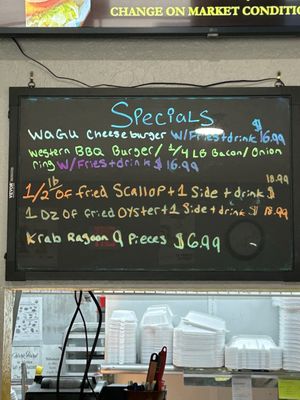 CHANGE ON MARKET CONDITIO
Specials
WAGU Cheeseburger W/Fries+drink $16.99
Western BBQ Burger/ 1/4 LB Bacon/Onion
ring W/Fries+drink $16.99
1/2 lb OF Fried Scallop+1 Side+drink $18.99
1 DZ OF Fried Oyster+1 Side+drink $18.99
Krab Ragoon 9 Pieces $6.99
VEVOR